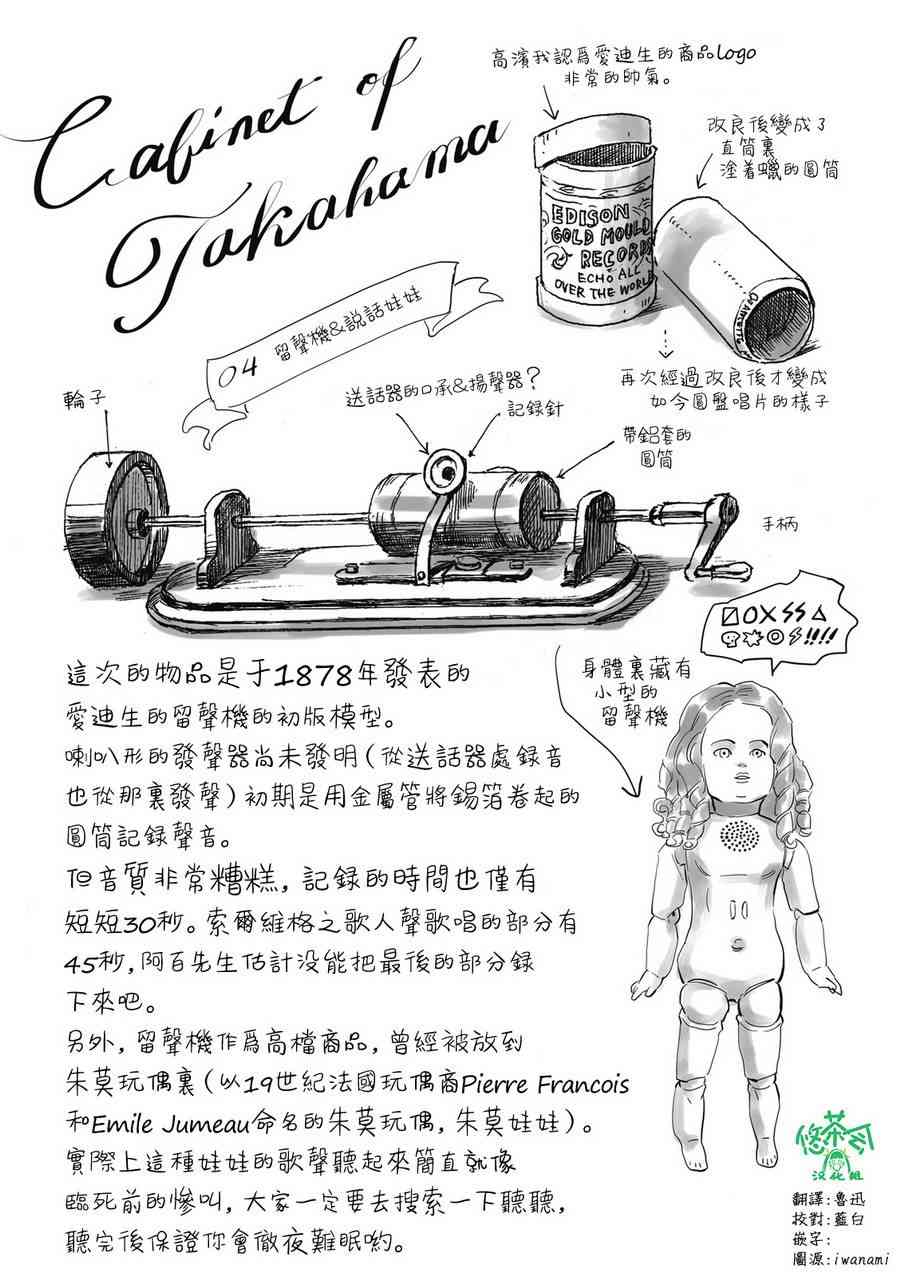 Cabinet of
Takahama
04 留聲機&説話娃娃
高濱我認爲愛迪生的商品logo
非常的帥氣。
改良後變成了
直筒裏
塗着蠟的圓筒
EDISON
GOLD MOULD
RECORDS
ECHO ALL
OVER THE WORLD
再次經過改良後才變成
如今圓盤唱片的樣子
輪子
送話器的口承&揚聲器?
記録針
帶鋁套的
圓筒
手柄
身體裏藏有
小型的
留聲機
這次的物品是于1878年發表的
愛迪生的留聲機的初版模型。
喇叭形的發聲器尚未發明(從送話器處録音
也從那裏發聲)初期是用金屬管將錫箔卷起的
圓筒記録聲音。
但音質非常糟糕,記録的時間也僅有
短短30秒。索爾維格之歌人聲歌唱的部分有
45秒,阿百先生估計没能把最後的部分録
下來吧。
另外,留聲機作爲高檔商品,曾經被放到
朱莫玩偶裏(以19世紀法國玩偶商Pierre Francois
和Emile Jumeau命名的朱莫玩偶,朱莫娃娃)。
實際上這種娃娃的歌聲聽起來簡直就像
臨死前的慘叫,大家一定要去搜索一下聽聽,
聽完後保證你會徹夜難眠喲。
悠茶会
汉化组
翻譯:魯迅
校對:藍白
嵌字:
圖源:iwanami